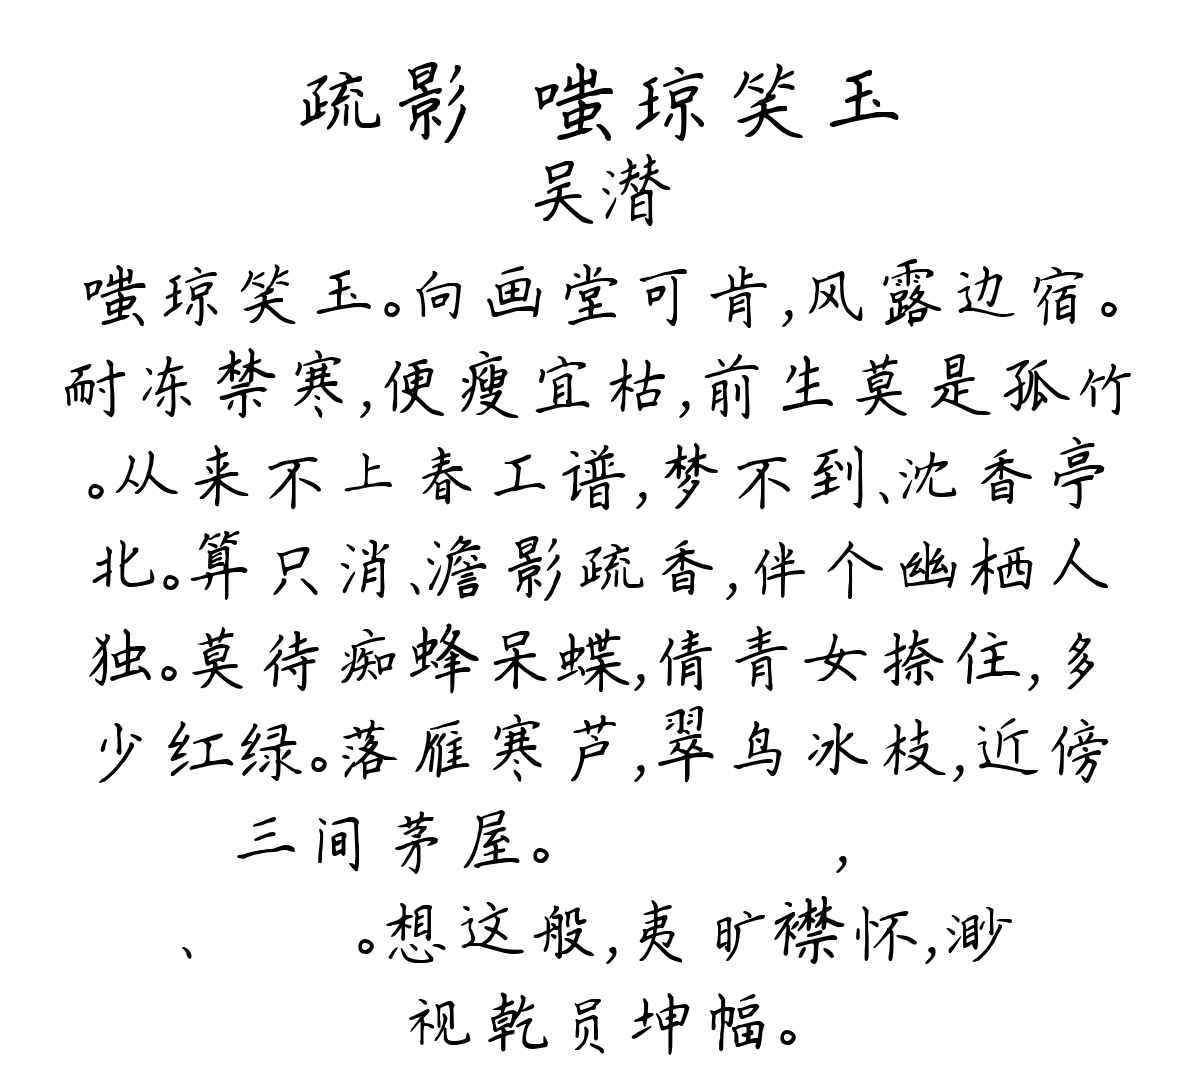 疏影 嗤琼笑玉
吴潜
嗤琼笑玉。向画堂可肯,风露边宿。
耐冻禁寒,便瘦宜枯,前生莫是孤竹
。从来不上春工谱,梦不到、沈香亭
北。算只消、澹影疏香,伴个幽栖人
独。莫待痴蜂呆蝶,倩青女捺住,多
少红绿。落雁寒芦,翠鸟冰枝,近傍
三间茅屋。 ,
、 。想这般,夷旷襟怀,渺
视乾员坤幅。